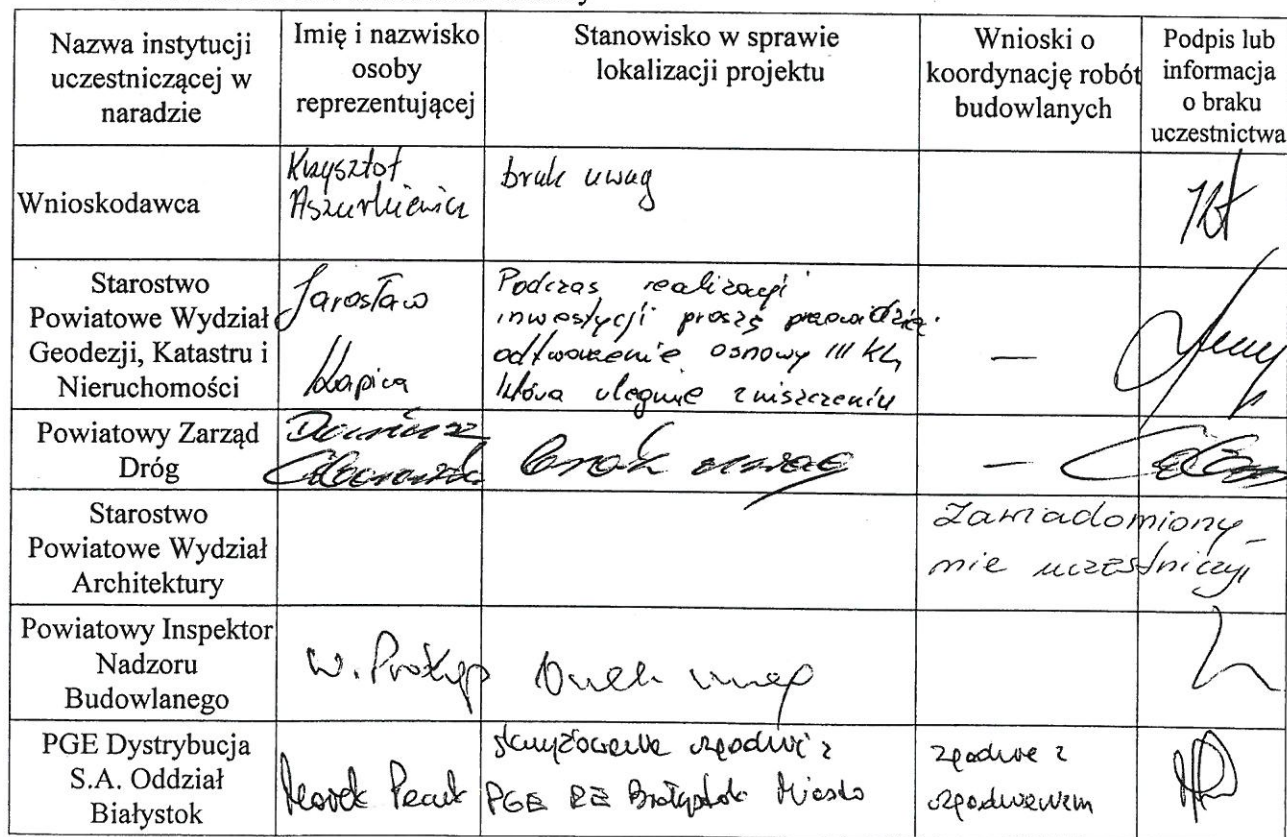 Nazwa instytucji
uczestniczącej w
naradzie
Imię i nazwisko
osoby
reprezentującej
Stanowisko w sprawie
lokalizacji projektu
Wnioski o
koordynację robót
budowlanych
Podpis lub
informacja
o braku
uczestnictwa
Wnioskodawca
Krzysztof
brak uwag
Starostwo
Powiatowe Wydział
Geodezji, Katastru i
Nieruchomości
Jarosław
Kapica
Podczas realizacji
inwestycji proszę
odtworzenie osnowy III kl,
która ulegnie zniszczeniu
—
Powiatowy Zarząd
Dróg
Dariusz
brak uwag
—
Starostwo
Powiatowe Wydział
Architektury
Zawiadomiony
nie uczestniczył
Powiatowy Inspektor
Nadzoru
Budowlanego
W. Prokop
brak uwag
PGE Dystrybucja
S.A. Oddział
Białystok
Marek
skrzyżowania uzgodnić z
PGE RE Białystok Miasto
zgodnie z
uzgodnieniem